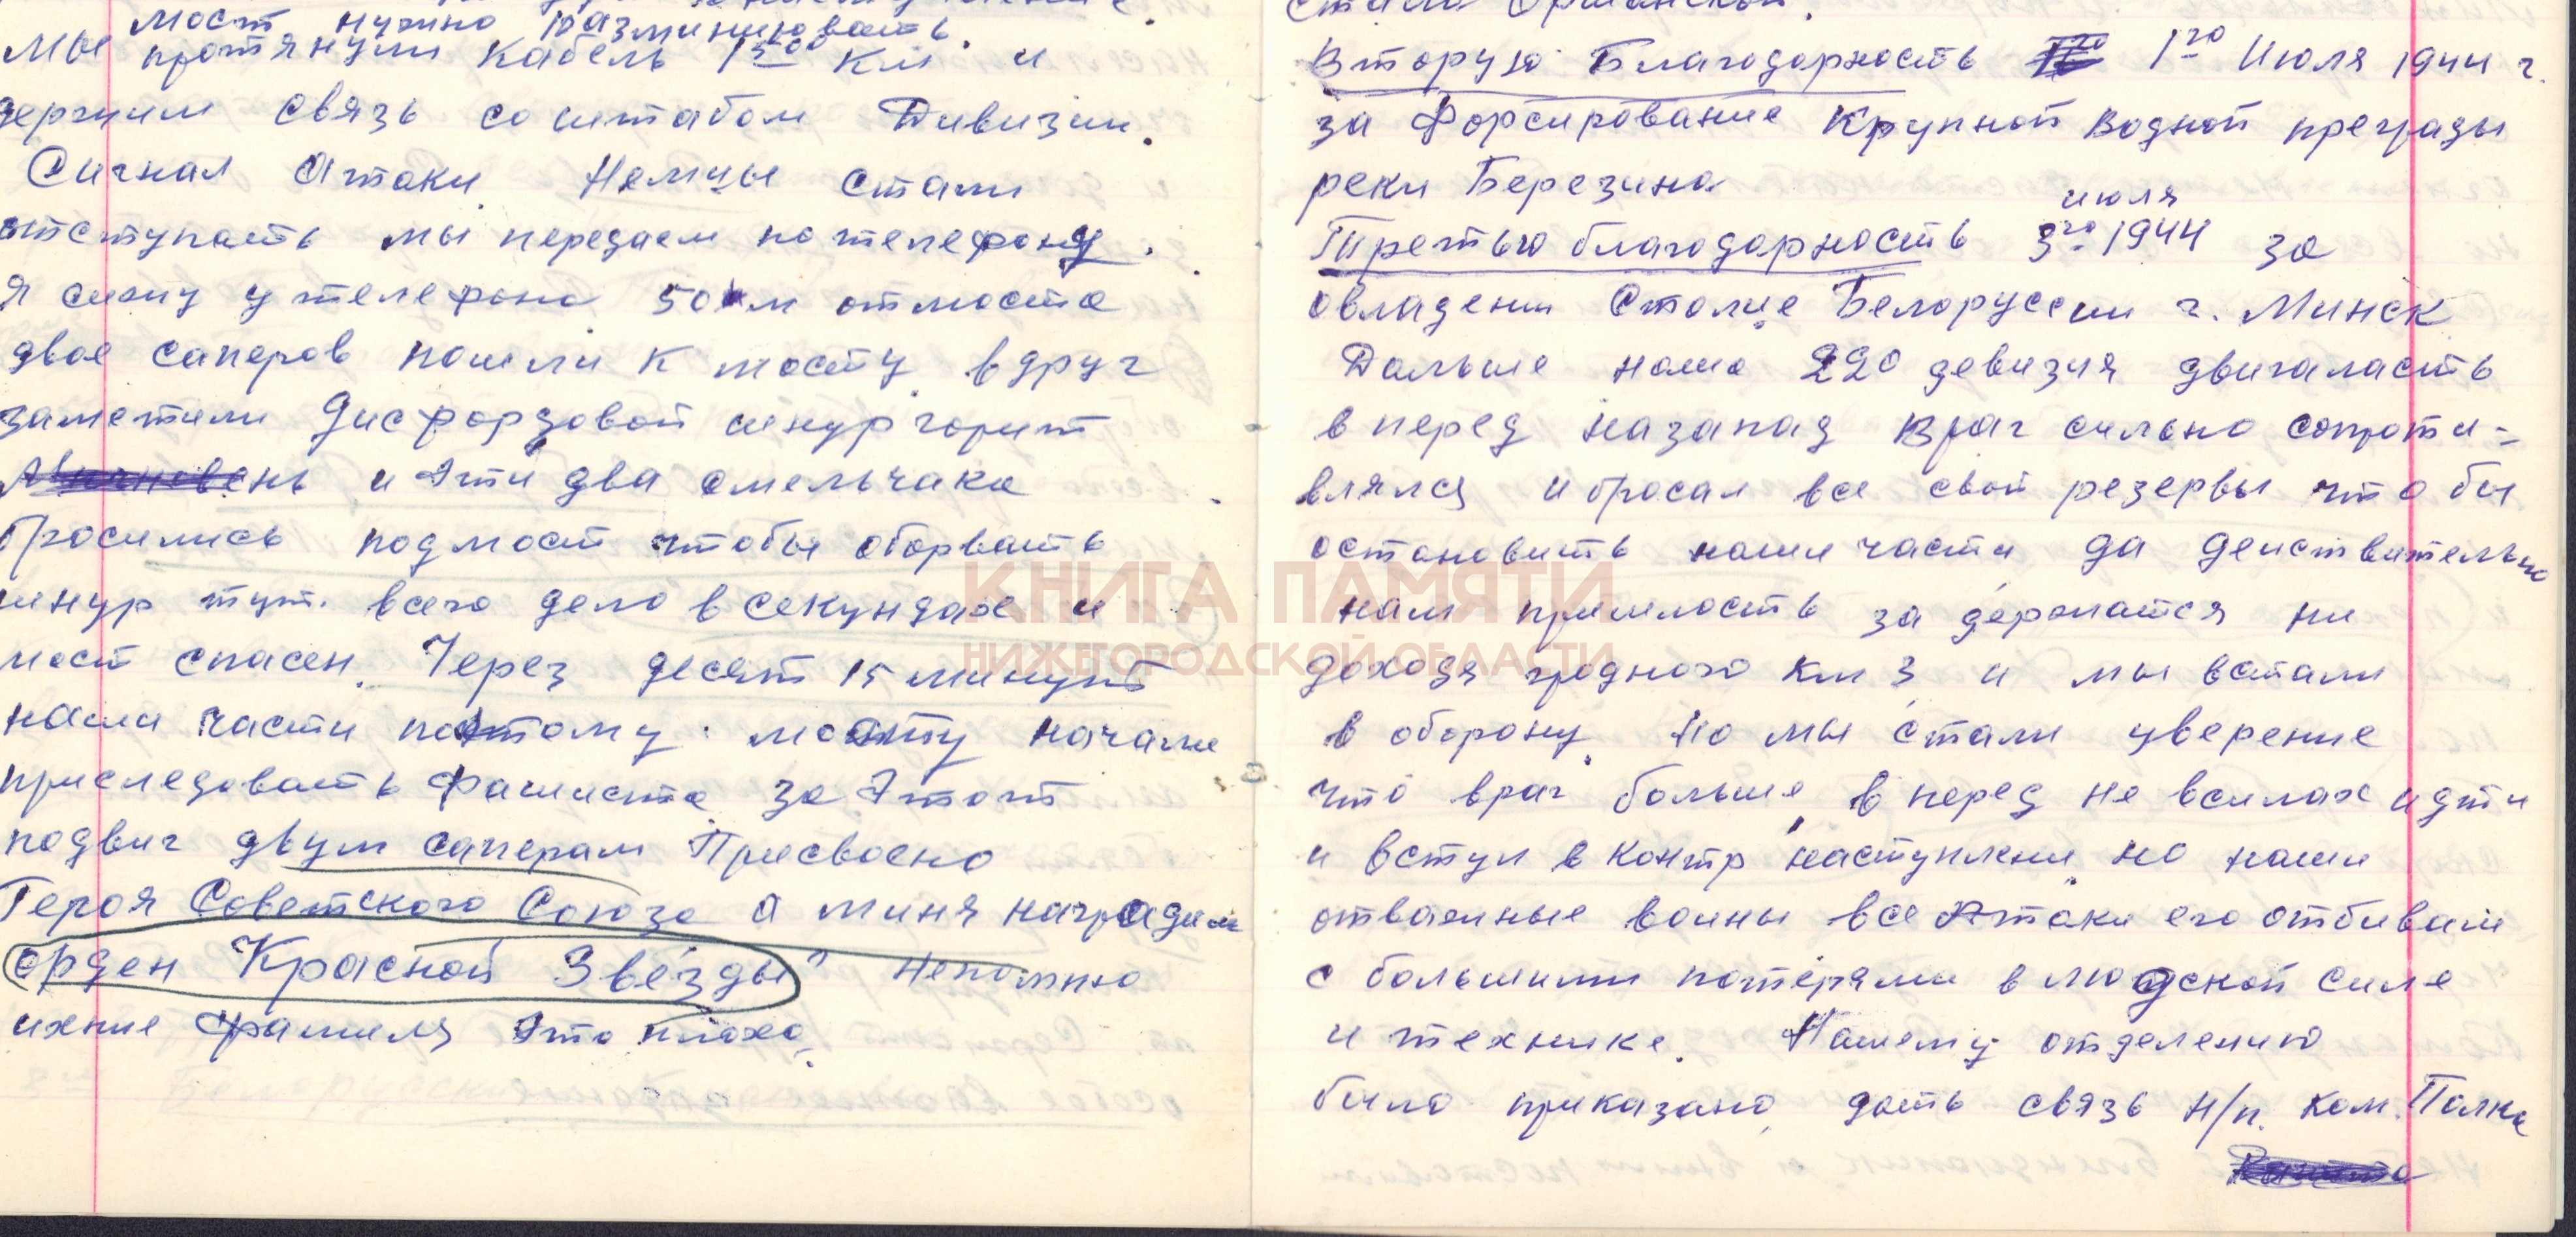 мост нужно разминировать.
Мы протянули кабель 1500 км и
держим связь со штабом Дивизии.
Сигнал Атаки. Немцы стали
отступать мы передаем по телефону.
Я сижу у телефона 50 м от моста
двое саперов пошли к мосту вдруг
заметили Дисфордзовой шнур горит
и эти два смельчака
бросились под мост чтобы оборвать
шнур тут. всего дело в секундах и
мост спасен. Через десят 15 минут
наши части по этому мосту начали
приследовать Фашиста за этот
подвиг двум саперам Присвоено
Героя Советского Союза а миня наградили
орден Красной Звёзды" Непомню
ихние фамиля это плохо.
стали Оршанской.
Вторую Благодарность 1го Июля 1944 г.
за Форсирование Крупной водной преграды
реки Березина
июля
Третью благодарность 3го 1944 за
овладени Столице Белоруссии г. Минск
Дальше наша 220 девизия двигаласть
в перед назапад враг сильно сопроти-
влялся и бросал все свои резервы что бы
остановить наши части да действительно
нам пришлость за держатся ни
доходя гродного км 3 и мы встали
в оборону. Но мы стали уверение
что враг больше в перед не всилах идти
и вступ в контр наступлени но наши
отважные воины все Атаки его отбивали
с большими потерями в людской силе
и технике. Нашему отделению
было приказано дать связь Н/п. ком. Полка
КНИГА ПАМЯТИ
НИЖЕГОРОДСКОЙ ОБЛАСТИ